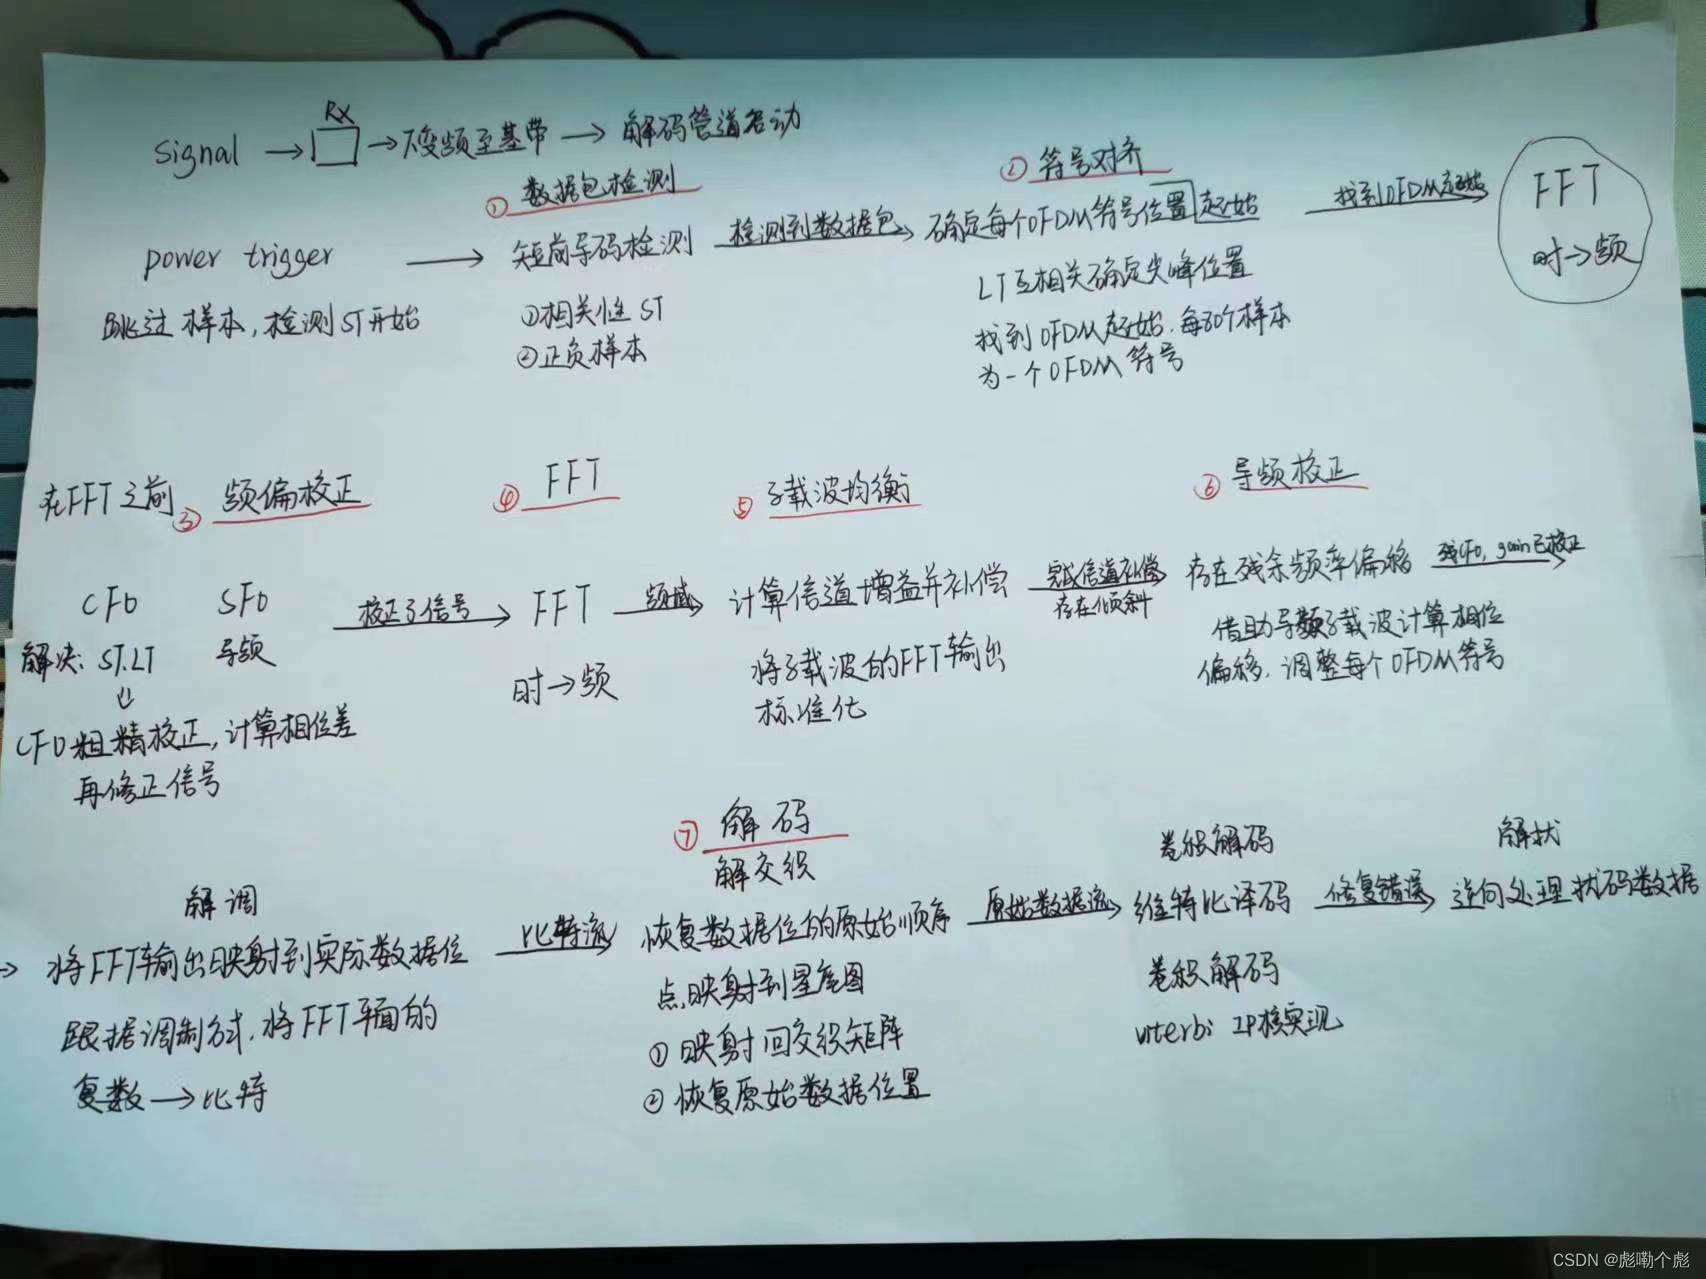 Signal → RX → 下变频至基带 → 解码管道启动
① 数据包检测
② 符号对齐
power trigger → 短前导码检测 检测到数据包 → 确定每个OFDM符号位置起始 找到OFDM起始 → FFT
时→频
跳过样本，检测ST开始
①相关性 ST
②正负样本
LT互相关确定尖峰位置
找到OFDM起始，每80个样本
为一个OFDM符号
在FFT之前 ③ 频偏校正
④ FFT
⑤ 子载波均衡
⑥ 导频校正
CFO SFO 校正了信号 → FFT 频域 → 计算信道增益并补偿 完成信道补偿 → 存在残余频率偏移 残CFO，gain已校正 →
存在倾斜
解决：ST.LT 导频
时→频
将子载波的FFT输出
标准化
借助导频子载波计算相位
偏移，调整每个OFDM符号
CFO粗精校正，计算相位差
再修正信号
⑦ 解码
解调
解交织
卷积解码
解扰
→ 将FFT输出映射到实际数据位 比特流 → 恢复数据位的原始顺序 原始数据流 → 维特比译码 修复错误 → 逆向处理扰码数据
跟据调制方式，将FFT输出的
复数 → 比特
点映射到星座图
①映射回交织矩阵
②恢复原始数据位置
卷积解码
viterbi IP核实现
CSDN @彪嘞个彪